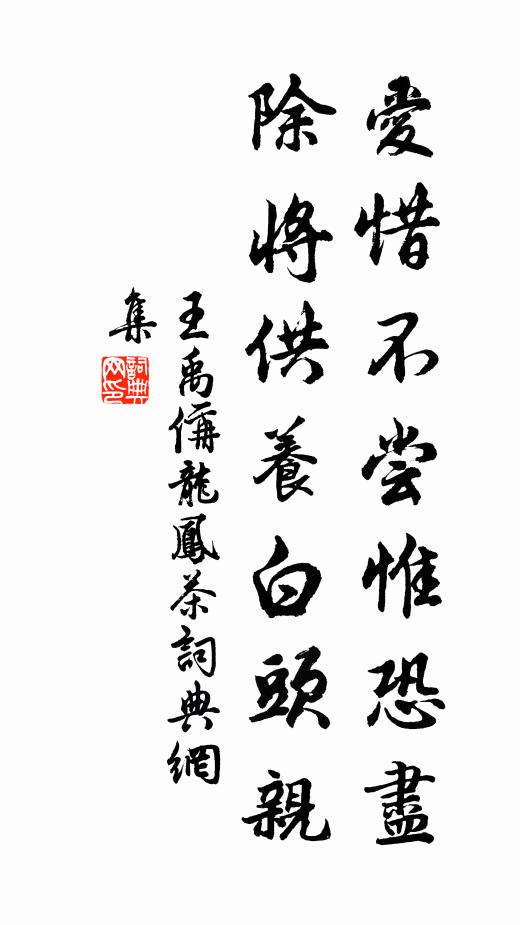 愛惜不尝惟恐盡
除將供養白頭親
王禹偁龍鳳茶詞典網
集
詞典网印